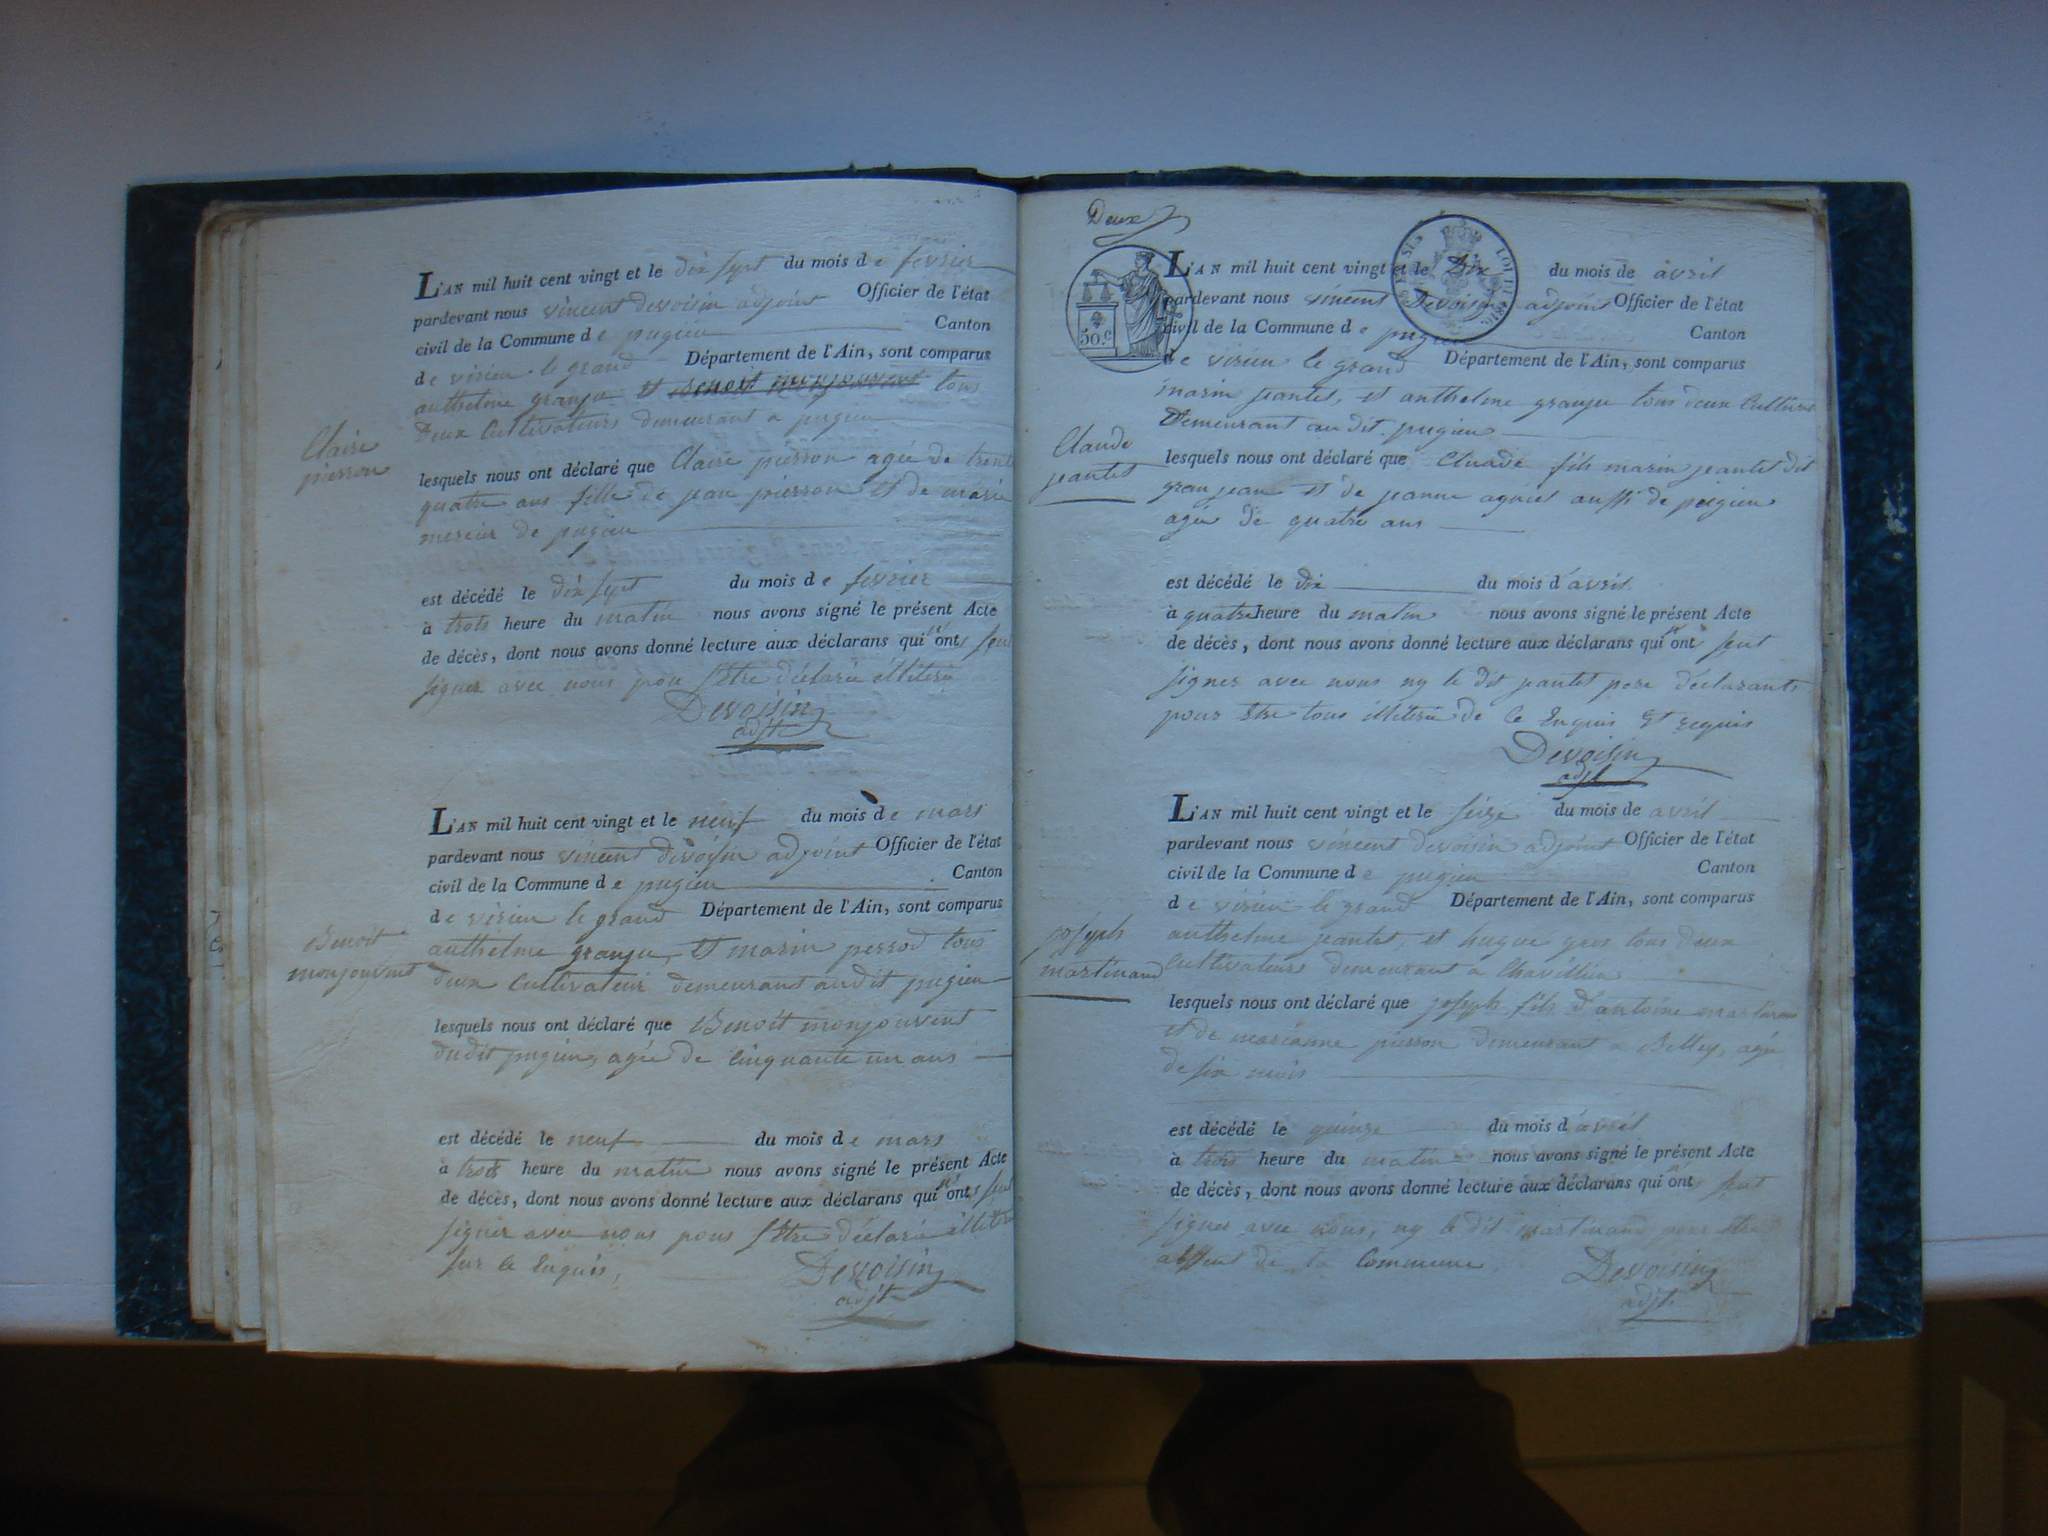 Claire
pierron
L'AN mil huit cent vingt et le dix sept du mois de fevrier
pardevant nous vincent devoisin adjoint Officier de l'état
civil de la Commune de pugieu Canton
de virieu le grand Département de l'Ain, sont comparus
anthelme granju et Benoit monjouvent tous
deux Cultivateurs demeurant a pugieu
lesquels nous ont déclaré que Claire pierron agée de trente
quatre ans fille de jean pierron et de marie
mercier de pugieu
est décédé le dix sept du mois de fevrier
à trois heure du matin nous avons signé le présent Acte
de décès, dont nous avons donné lecture aux déclarans qui n'ont seut
signer avec nous pour s'etre déclaré illiteré
Devoisin
adjt
Benoit
monjouvent
L'AN mil huit cent vingt et le neuf du mois de mars
pardevant nous vincent devoisin adjoint Officier de l'état
civil de la Commune de pugieu Canton
de virieu le grand Département de l'Ain, sont comparus
anthelme granju, et marin perrod tous
deux Cultivateur demeurant audit pugieu
lesquels nous ont déclaré que Benoit monjouvent
dudit pugieu, agée de Cinquante un ans
est décédé le neuf du mois de mars
à trois heure du matin nous avons signé le présent Acte
de décès, dont nous avons donné lecture aux déclarans qui n'ont seut
signer avec nous pour s'etre déclaré illiteré
sur ce enquis,
Devoisin
adjt
Deux
50.c
LOI
Claude
jeantet
L'AN mil huit cent vingt et le Dix du mois de avril
pardevant nous vincent Devoisin adjoint Officier de l'état
civil de la Commune de pugieu Canton
de virieu le grand Département de l'Ain, sont comparus
marin jeantet, et anthelme granju tous deux Cultivat
Demeurant audit pugieu
lesquels nous ont déclaré que Cluade fils marin jeantet dit
gran jean et de jeanne agniel aussi de pugieu
agée de quatre ans
est décédé le dix du mois d'avril
à quatre heure du matin nous avons signé le présent Acte
de décès, dont nous avons donné lecture aux déclarans qui n'ont seut
signer avec nous ny le dit jantet pere déclarants
pour etre tous illiteré de ce Enquis et requis
Devoisin
adjt
joseph
martinand
L'AN mil huit cent vingt et le seize du mois de avril
pardevant nous vincent devoisin adjoint Officier de l'état
civil de la Commune de pugieu Canton
de virieu le grand Département de l'Ain, sont comparus
anthelme jeantet, et hugue gros tous deux
Cultivateurs demeurant a Chavillieu
lesquels nous ont déclaré que joseph fils d'antoine martinan
et de marianne pierron demeurant a Belley, agé
de six mois
est décédé le quinze du mois d'avril
à trois heure du matin nous avons signé le présent Acte
de décès, dont nous avons donné lecture aux déclarans qui n'ont seut
signer avec nous, ny le dit martinand pour etre
absent de la Commune
Devoisin
adjt